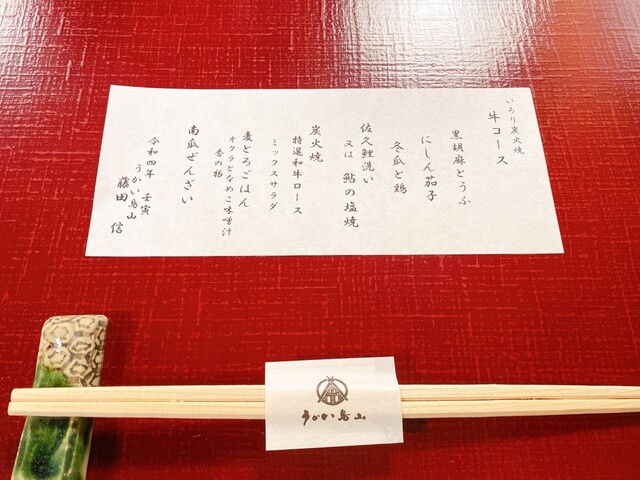 いろり炭火焼
牛コース
黒胡麻とうふ
にしん茄子
冬瓜と鶏
佐久鯉洗い
又は 鮎の塩焼
炭火焼
特選和牛ロース
ミックスサラダ
麦とろごはん
オクラとなめこ味噌汁
香の物
南瓜ぜんざい
令和四年 壬寅
うかい鳥山
藤田 信
うかい鳥山